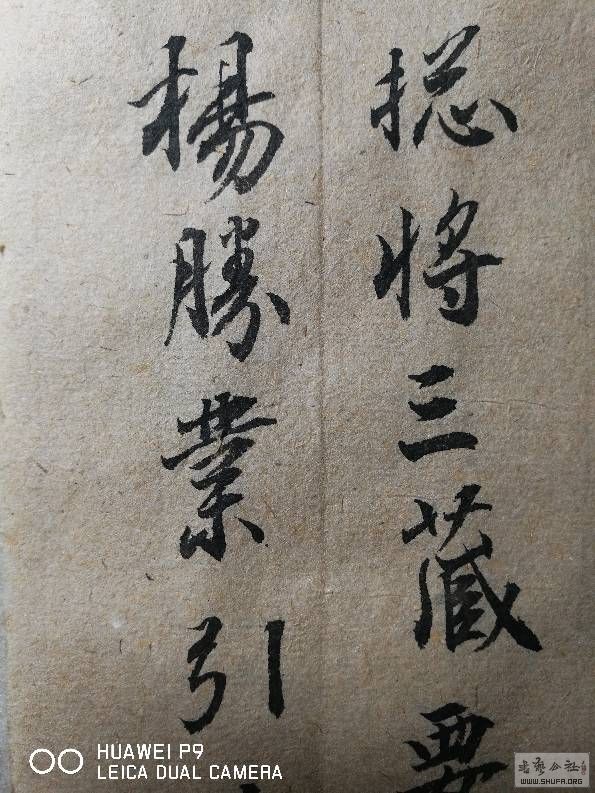 揔将三藏要
楊勝業引
HUAWEI P9
LEICA DUAL CAMERA
书艺公社
WWW.SHUFA.ORG